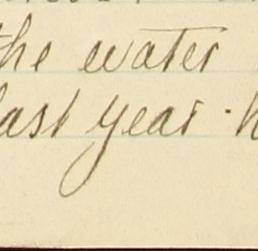 the water
last year.